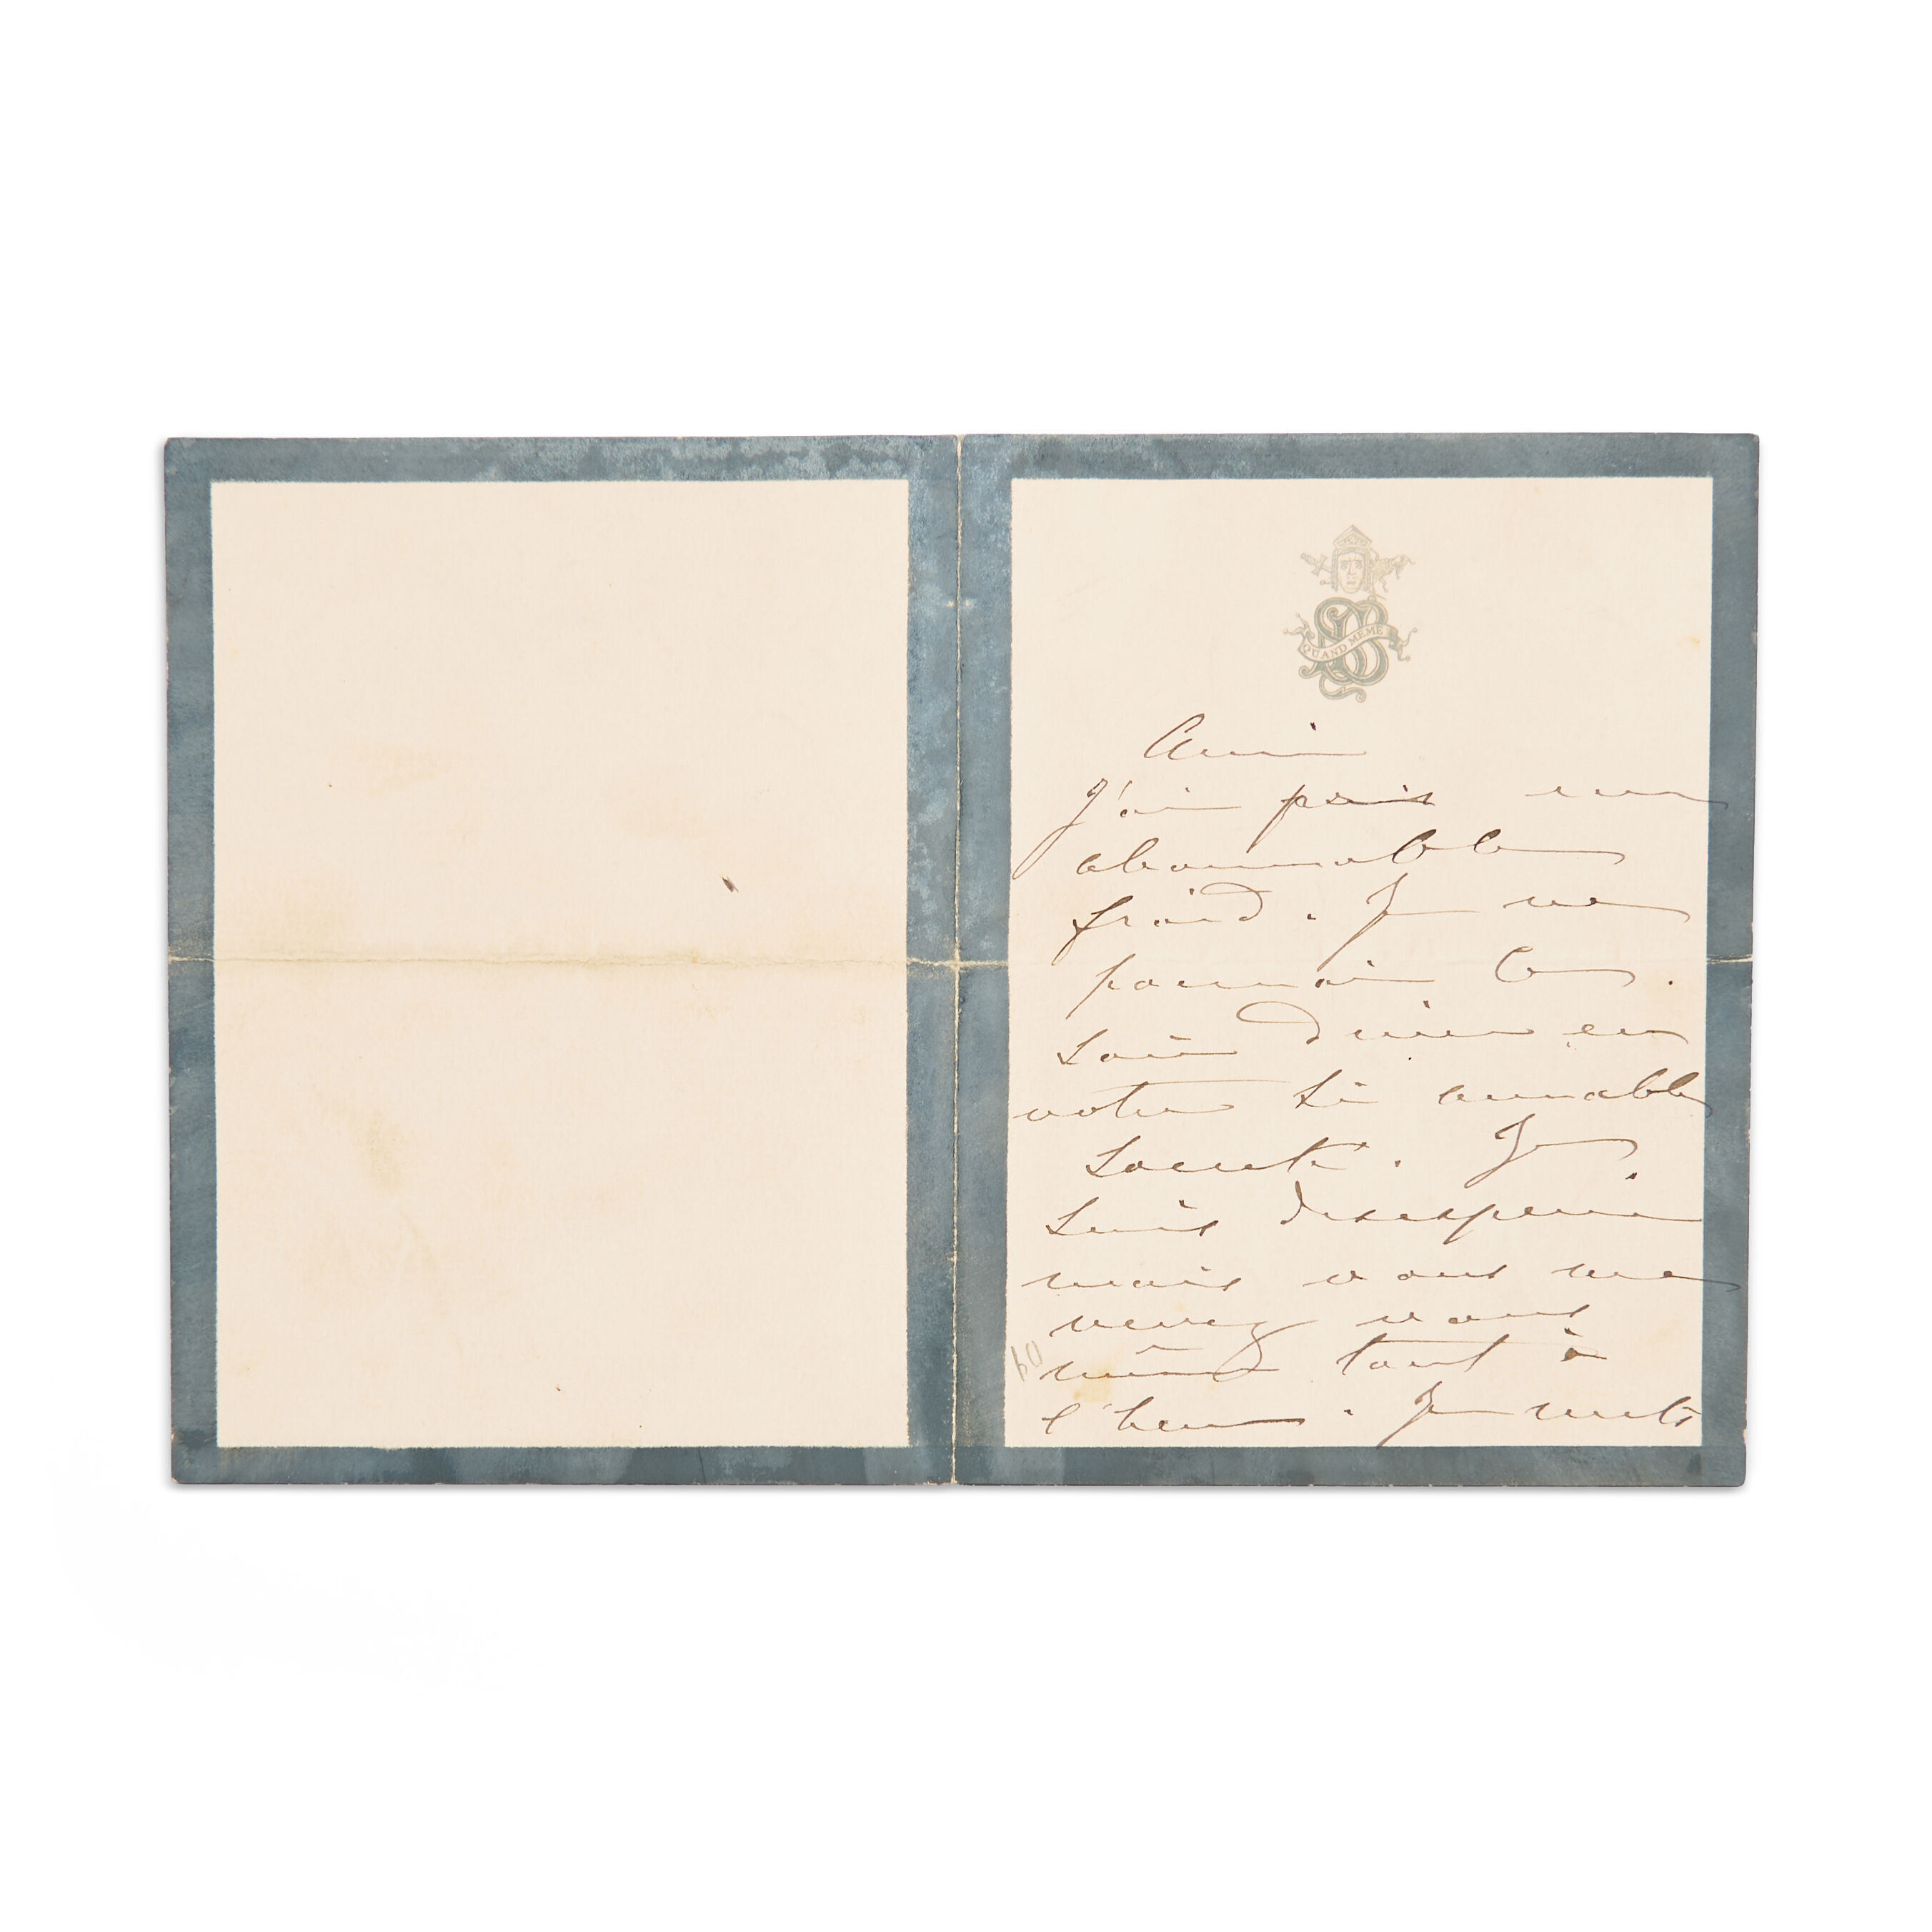 QUAND MEME
Ami
J'ai pris un
abominable
froid. Je ne
pourrai ce
soir diner en
votre si aimable
société. Je
suis désespérée
mais vous me
verrez vous
même tout à
l'heure. Je mets